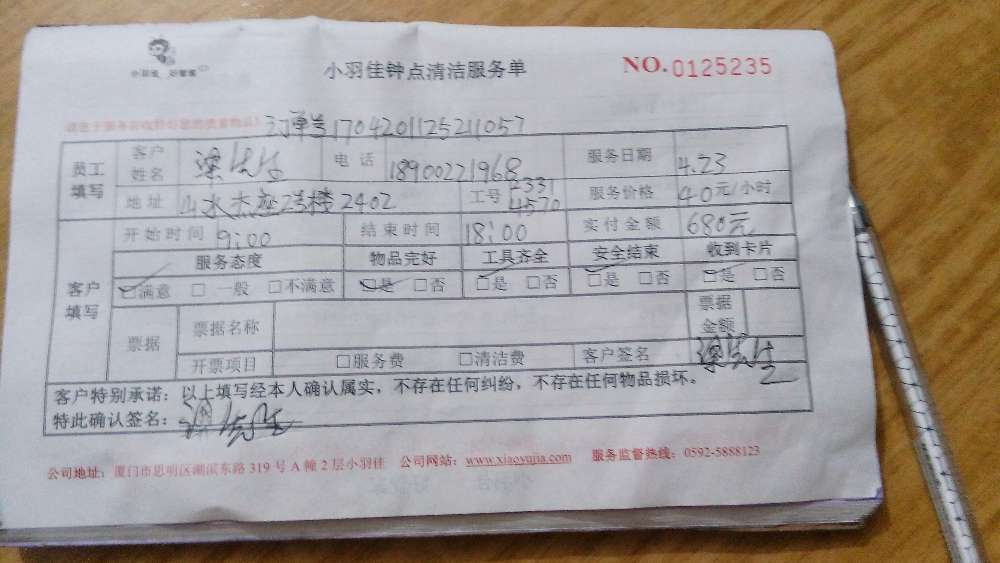 小羽佳 好管家
小羽佳钟点清洁服务单
NO.0125235
订单号1704201125211057
员工填写 客户姓名 梁先生 电话 18900221968 服务日期 4.23
地址 山水杰座2号楼2402 工号 2331 4570 服务价格 40元/小时
开始时间 9:00 结束时间 18:00 实付金额 680元
客户填写 服务态度 物品完好 工具齐全 安全结束 收到卡片
☑满意 □一般 □不满意 ☑是 □否 ☑是 □否 ☑是 □否 ☑是 □否
票据 票据名称 票据金额
开票项目 □服务费 □清洁费 客户签名 梁先生
客户特别承诺：以上填写经本人确认属实，不存在任何纠纷，不存在任何物品损坏。
特此确认签名：梁先生
公司地址：厦门市思明区湖滨东路 319 号 A 幢 2 层小羽佳 公司网站：www.xiaoyujia.com 服务监督热线：0592-5888123